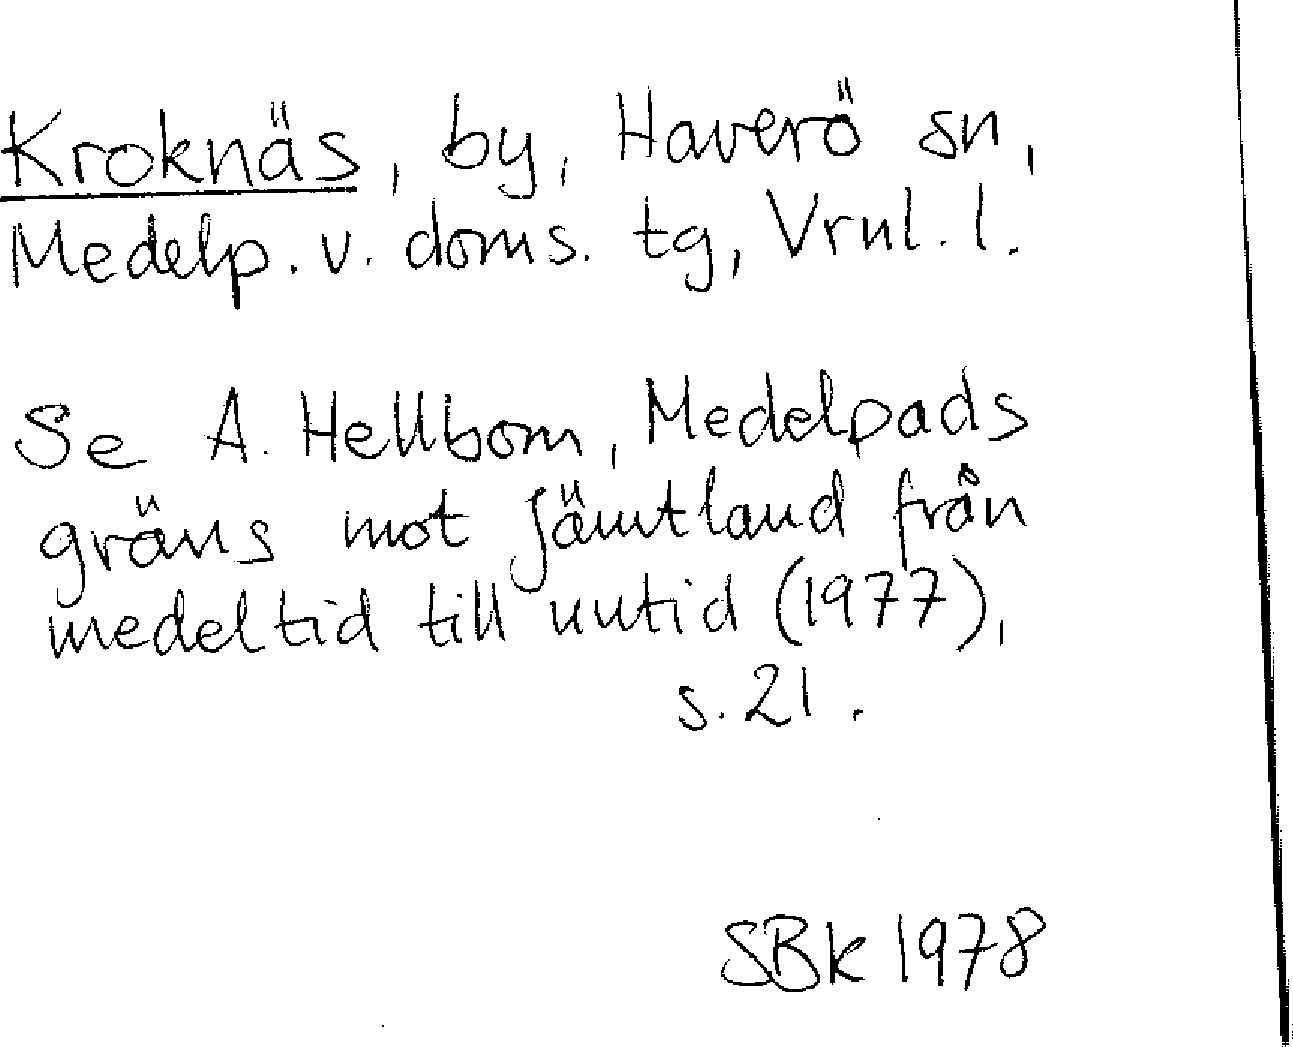 Kroknäs, by, Haverö sn,
Medelp. v. doms. tg, Vrnl. l.
Se A. Hellbom, Medelpads
gräns mot Jämtland från
medeltid till nutid (1977),
s. 21.
SBk 1978